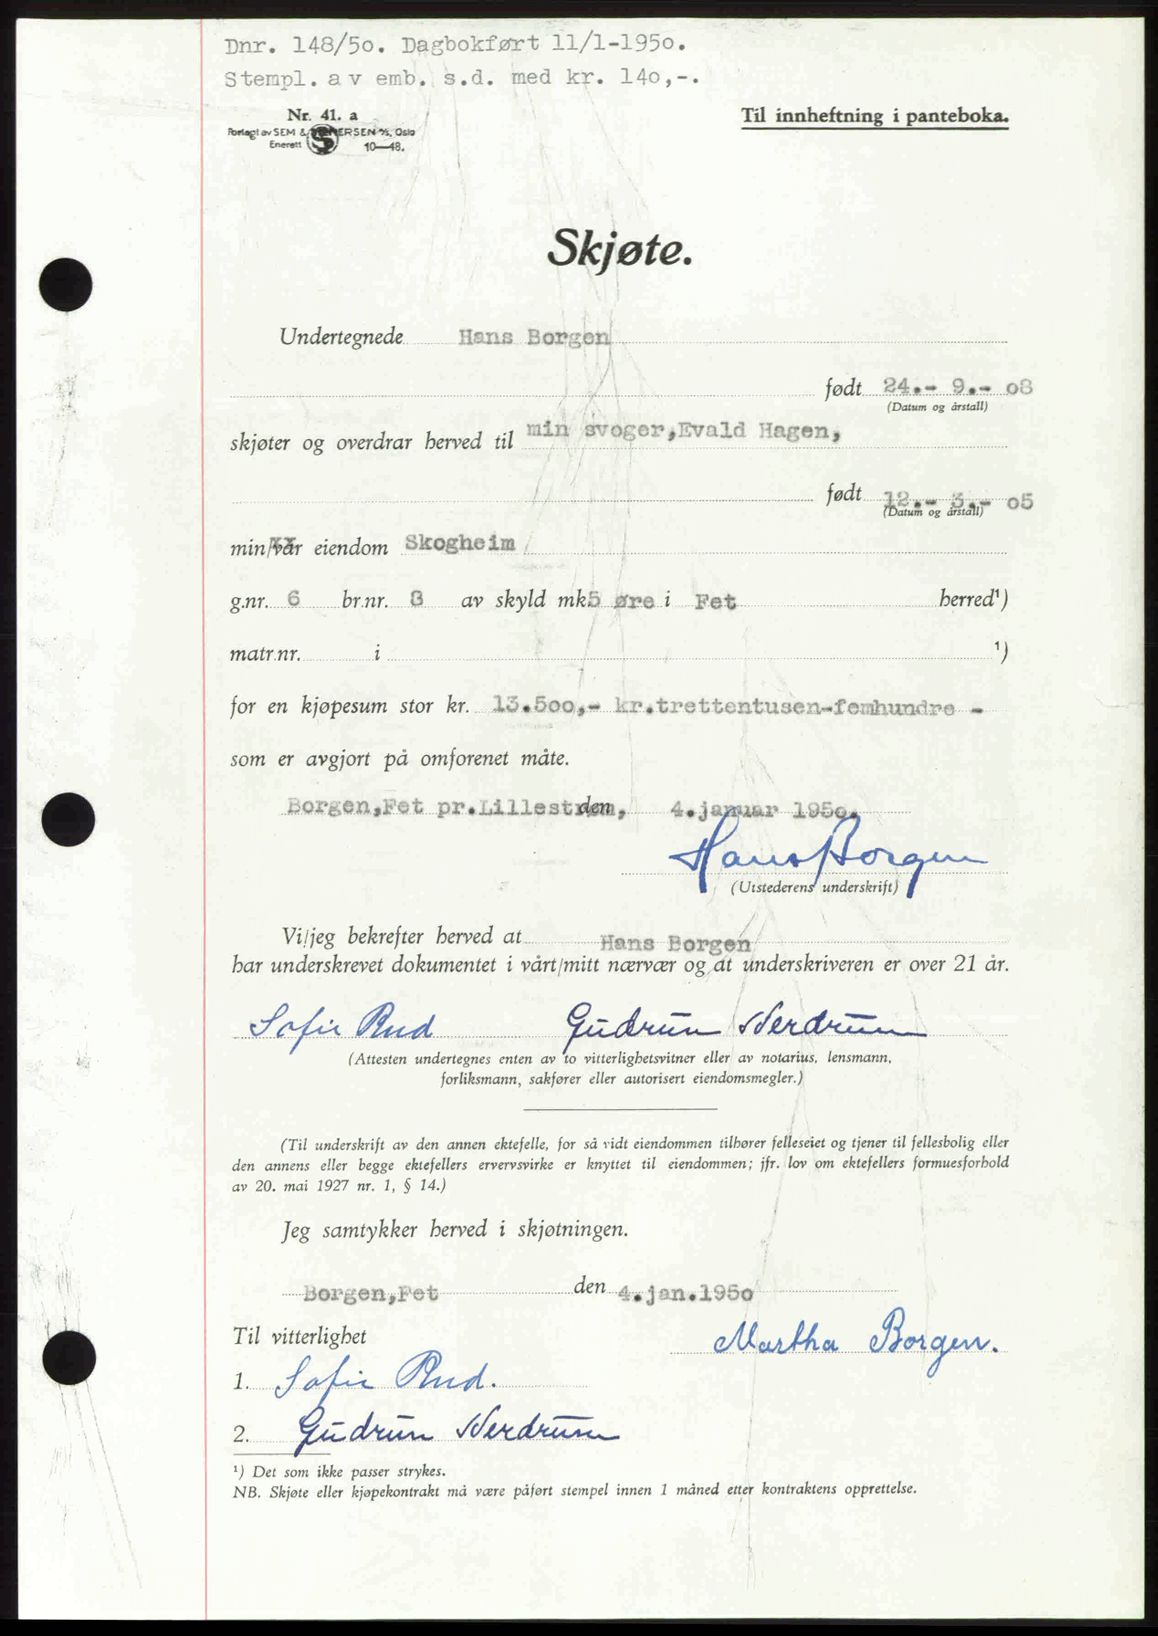 Dnr. 148/50. Dagbokført 11/1-1950.
Stempl. av emb. s.d. med kr. 140,-.
Nr. 41. a
Til innheftning i panteboka.
Forlagt av SEM & STENERSEN A/S, Oslo
Enerett 10—48.
Skjøte.
Undertegnede Hans Borgen
født 24.- 9.- 08
(Datum og årstall)
skjøter og overdrar herved til min svoger,Evald Hagen,
født 12.- 3.- 05
(Datum og årstall)
min/vår eiendom Skogheim
g.nr. 6 br.nr. 8 av skyld mk 5 øre i Fet herred¹)
matr.nr. i ¹)
for en kjøpesum stor kr. 13.500,- kr.trettentusen-femhundre -
som er avgjort på omforenet måte.
Borgen,Fet pr.Lillestrøm, den 4.januar 1950.
Hans Borgen
(Utstederens underskrift)
Vi/jeg bekrefter herved at Hans Borgen
har underskrevet dokumentet i vårt/mitt nærvær og at underskriveren er over 21 år.
Sofie Rud Gudrun Nerdrum
(Attesten undertegnes enten av to vitterlighetsvitner eller av notarius, lensmann,
forliksmann, sakfører eller autorisert eiendomsmegler.)
(Til underskrift av den annen ektefelle, for så vidt eiendommen tilhører felleseiet og tjener til fellesbolig eller
den annens eller begge ektefellers ervervsvirke er knyttet til eiendommen; jfr. lov om ektefellers formuesforhold
av 20. mai 1927 nr. 1, § 14.)
Jeg samtykker herved i skjøtningen.
Borgen,Fet den 4.jan.1950
Til vitterlighet
Martha Borgen.
1. Sofie Rud.
2. Gudrun Nerdrum
¹) Det som ikke passer strykes.
NB. Skjøte eller kjøpekontrakt må være påført stempel innen 1 måned etter kontraktens opprettelse.